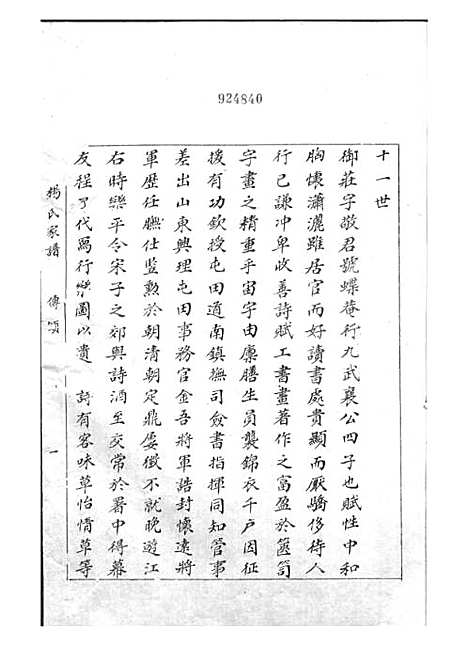 924840
十一世
御莊字敬君號蝶菴行九武襄公四子也賦性中和
胸懷瀟灑雖居官而好讀書處貴顯而厭驕侈待人
行己謙冲卑牧善詩賦工書畫著作之富盈於篋笥
字畫之精重乎宙宇由廩膳生員襲錦衣千戶因征
援有功欽授屯田道南鎮撫司僉書指揮同知管事
差出山東興理屯田事務官金吾將軍誥封懷遠將
軍歷任膴仕監勲於朝清朝定鼎屡徵不就晚遊江
右時樂平令宋子之郊與詩酒至交常於署中得幕
友程代爲行樂圖以貴 詩有客味草怡情草等
楊氏家譜 傳頌 一